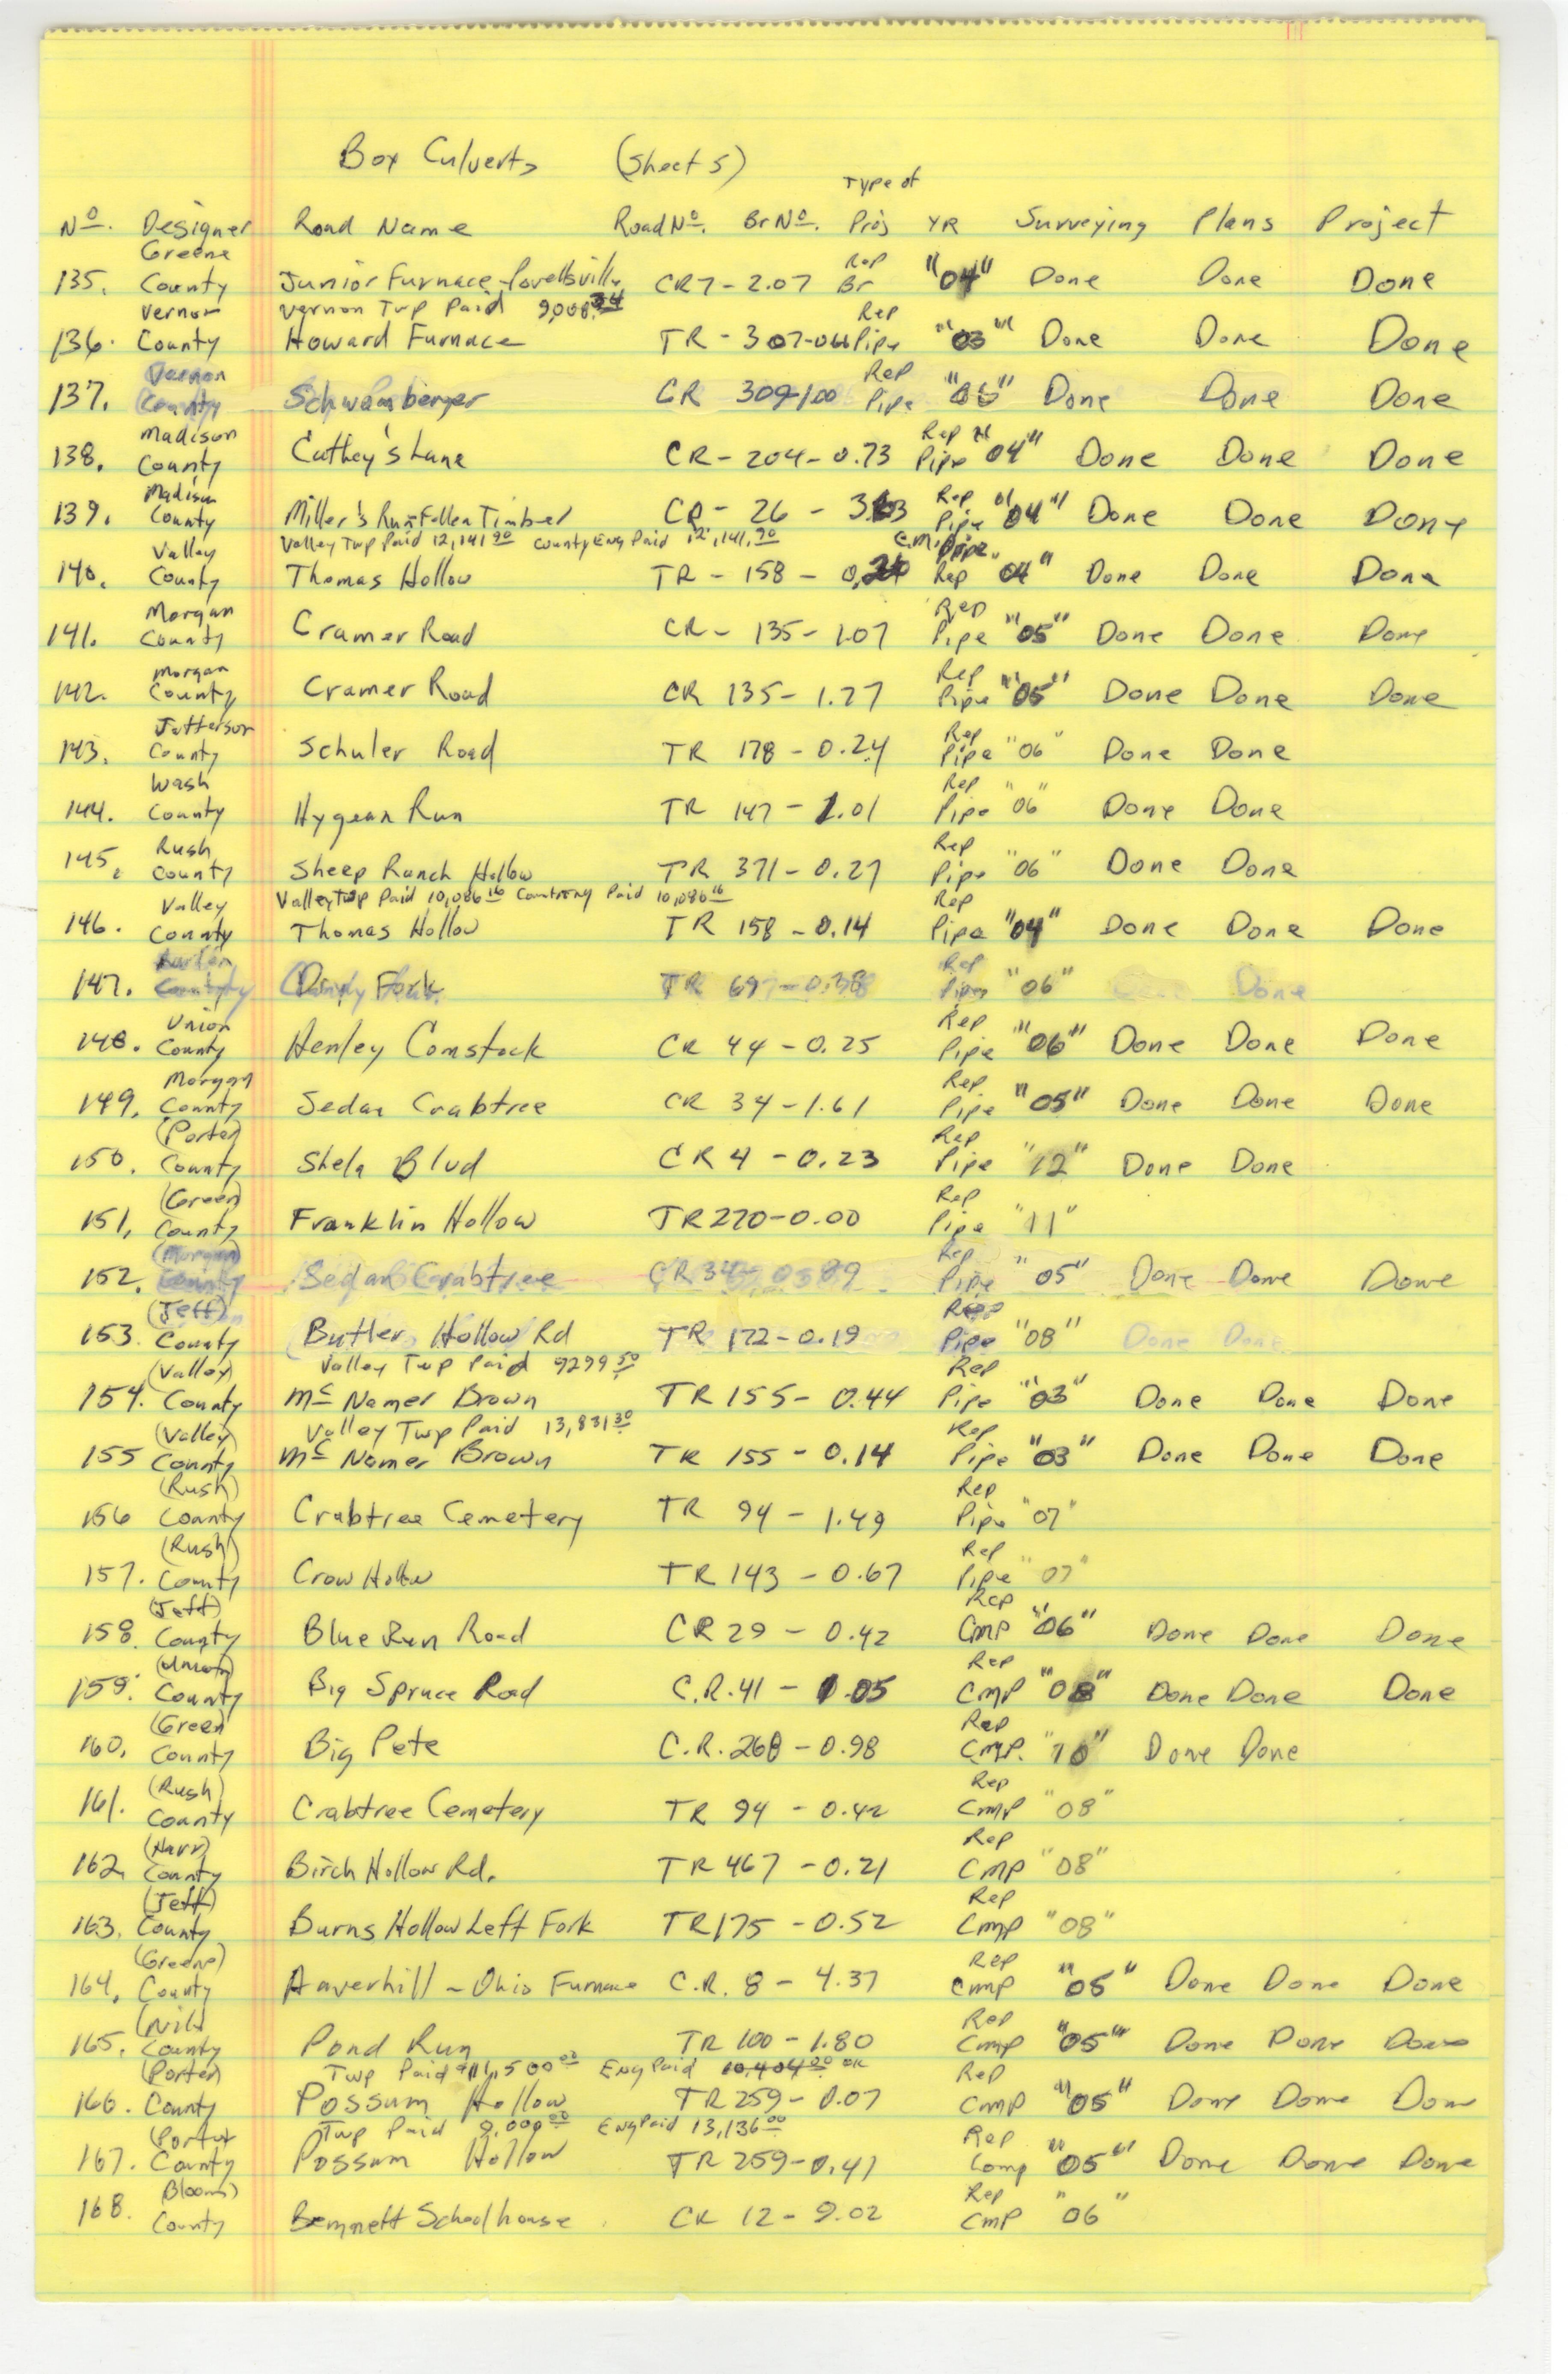 Box Culverts (Sheet 5)
Type of
No. Designer Road Name Road No. Br No. Proj YR Surveying Plans Project
Greene Rep
135. County Junior Furnace-Powellsville CR7-2.07 Br "04" Done Done Done
Vernon Vernon Twp Paid Rep
136. County Howard Furnace TR-307- Pipe "03" Done Done Done
Vernon Rep
137. County Schwamberger CR 309-1.00 Pipe Done Done Done
Madison Rep
138. County Cathey's Lane CR-204-0.73 Pipe "04" Done Done Done
Madison Rep
139. County Miller's Run-Fallen Timber CR-26- Pipe "04" Done Done Done
Valley Valley Twp Paid 12,141.90 County Eng Paid 12,141.90
140. County Thomas Hollow TR-158- Rep "04" Done Done Done
Morgan Rep
141. County Cramer Road CR-135-1.07 Pipe "05" Done Done Done
Morgan Rep
142. County Cramer Road CR 135-1.27 Pipe "05" Done Done Done
Jefferson Rep
143. County Schuler Road TR 178-0.24 Pipe "06" Done Done
Wash Rep
144. County Hygean Run TR 147-1.01 Pipe "06" Done Done
Rush Rep
145. County Sheep Ranch Hollow TR 371-0.27 Pipe "06" Done Done
Valley Valley Twp Paid 10,086.16 County Eng Paid 10,086.16 Rep
146. County Thomas Hollow TR 158-0.14 Pipe "04" Done Done Done
Rep
147. County Fork TR 697-0.38 Pipe "06" Done
Union Rep
148. County Henley Comstock CR 44-0.25 Pipe "06" Done Done Done
Morgan Rep
149. County Sedan Crabtree CR 34-1.61 Pipe "05" Done Done Done
(Porter) Rep
150. County Shela Blvd CR 4-0.23 Pipe "12" Done Done
(Green) Rep
151. County Franklin Hollow TR 270-0.00 Pipe "11"
(Morgan) Rep
152. County Sedan Crabtree CR 34- Pipe "05" Done Done Done
(Jeff) Rep
153. County Butler Hollow Rd TR 172-0.19 Pipe "08" Done Done
(Valley) Valley Twp Paid 9299.50 Rep
154. County McNamer Brown TR 155-0.44 Pipe "03" Done Done Done
(Valley) Valley Twp Paid 13,831.30 Rep
155 County McNamer Brown TR 155-0.14 Pipe "03" Done Done Done
(Rush) Rep
156 County Crabtree Cemetery TR 94-1.49 Pipe "07"
(Rush) Rep
157. County Crow Hollow TR 143-0.67 Pipe "07"
(Jeff) Rep
158. County Blue Run Road CR 29-0.42 CMP "06" Done Done Done
(Union) Rep
159. County Big Spruce Road C.R. 41-0.05 CMP "08" Done Done Done
(Green) Rep
160. County Big Pete C.R. 268-0.98 CMP. "10" Done Done
(Rush) Rep
161. County Crabtree Cemetery TR 94-0.42 CMP "08"
(Harr) Rep
162 County Birch Hollow Rd. TR 467-0.21 CMP "08"
(Jeff) Rep
163. County Burns Hollow Left Fork TR 175-0.52 CMP "08"
(Greene) Rep
164. County Haverhill-Ohio Furnace C.R. 8-4.37 CMP "05" Done Done Done
(Nile) Rep
165. County Pond Run TR 100-1.80 CMP "05" Done Done Done
(Porter) Twp Paid $11,500.00 Eng Paid 10,404.00 OK Rep
166. County Possum Hollow TR 259-0.07 CMP "05" Done Done Done
(Porter Twp Paid 9,000.00 Eng Paid 13,136.00 Rep
167. County Possum Hollow TR 259-0.47 Comp "05" Done Done Done
(Bloom) Rep
168. County Bennett Schoolhouse CR 12-9.02 CMP "06"